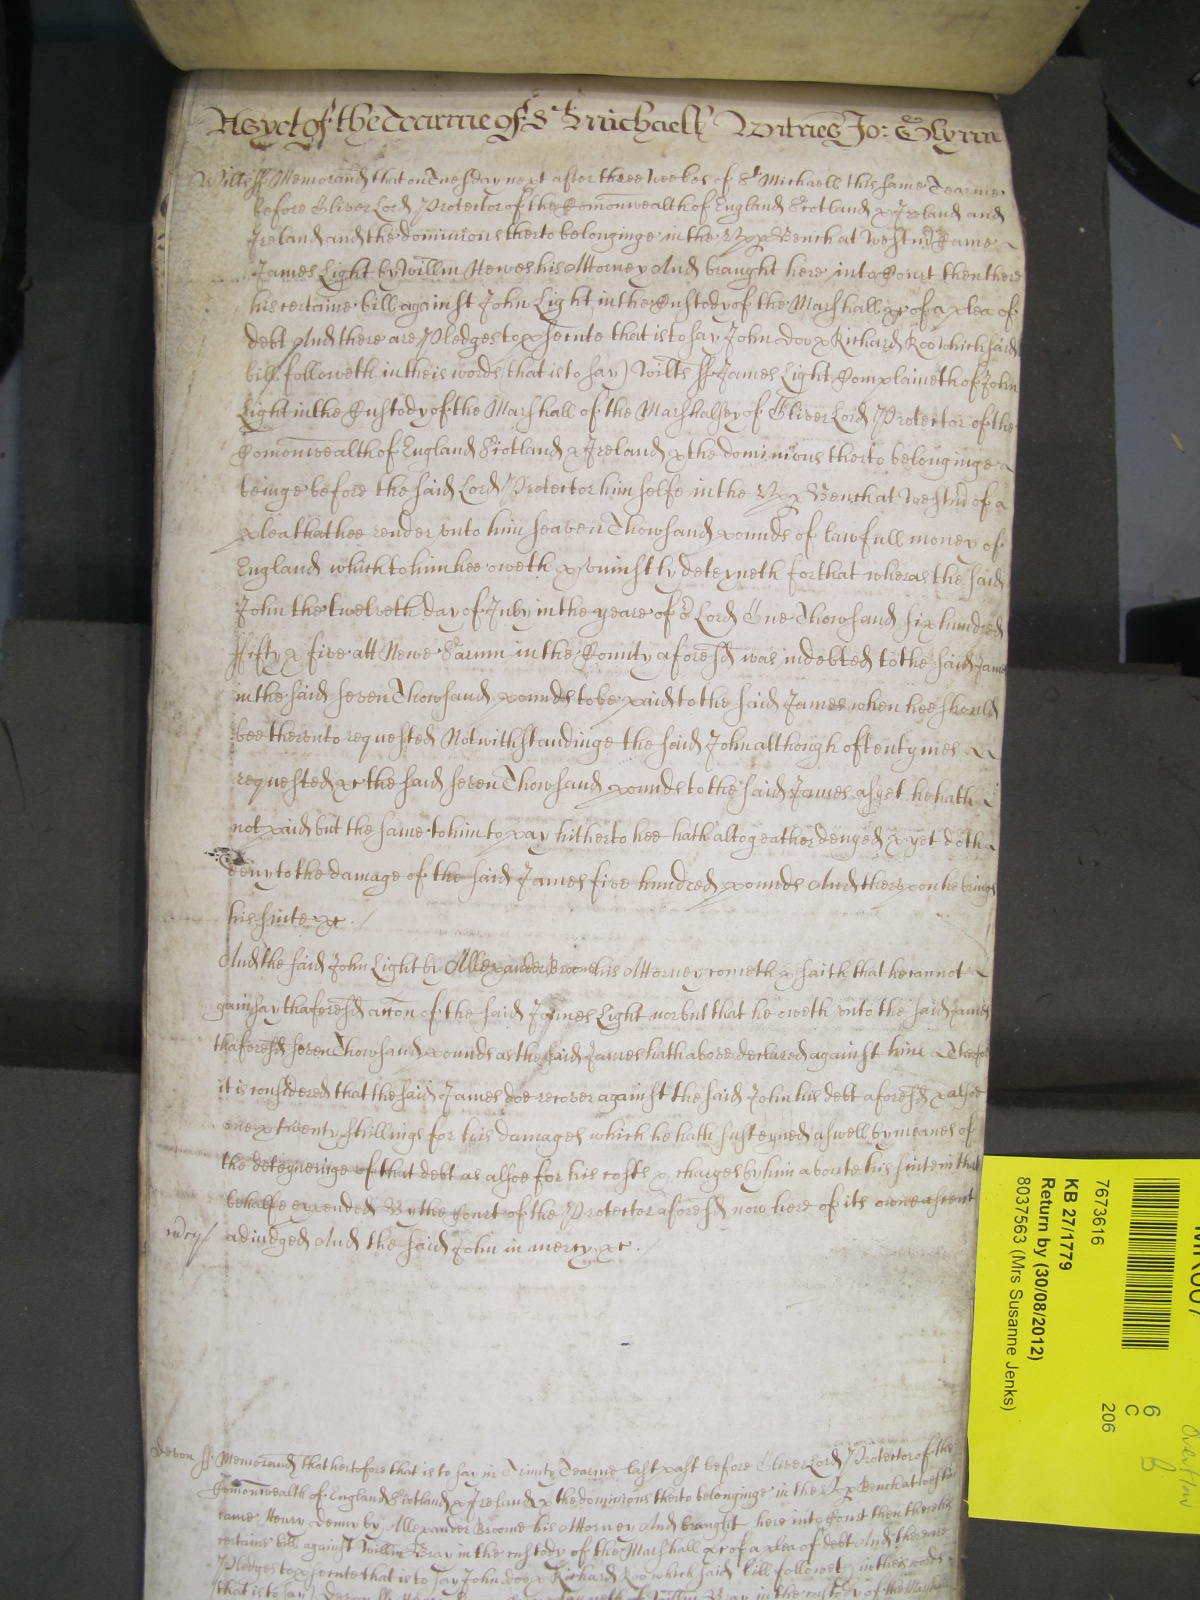 As yet of the Tearme of St Michaell Witnes Jo: Glynn
Wilts ss Memorand that on Tuesday next after three weekes of St Michaell this same Tearme
before Oliver Lord Protector of the Comonwealth of England Scotland & Ireland and
Ireland and the dominions therto belonginge in the Upp Bench at Westmr Came
James Light by Willm Hewes his Attorney And braught here into Court then there
his certaine bill against John Light in the Custody of the Marshall &c of a plea of
debt And there are Pledges to psecute that is to say John Doo & Richard Roo which said
bill followeth in theis words (that is to say) Wilts ss James Light Complaineth of John
Light in the Custody of the Marshall of the Marshalsey of Oliver Lord Protector of the
Comonwealth of England Scotland & Ireland & the dominions therto belonginge
beinge before the said Lord Protector himselfe in the Upp Bench at Westmr of a
plea that hee render unto him seaven Thowsand pounds of lawfull money of
England which to him hee oweth & uniustly deteyneth for that wheras the said
John the twelveth day of July in the yeare of or Lord One Thowsand six hundred
ffifty & five att Newe Sarum in the County aforesd was indebted to the said James
in the said seven Thowsand pounds to be paid to the said James when hee should
bee therunto requested Notwithstandinge the said John although oftentymes
requested &c the said seven Thowsand pounds to the said James as yet he hath
not paid but the same to him to pay hitherto hee hath altogeather denyed & yet doth
deny to the damage of the said James five hundred pounds And therupon he brings
his suite &c.
And the said John Light by Allexander Broome his Attorney cometh & saith that he cannot
gainsay thaforesd accon of the said James Light nor but that he oweth unto the said James
thaforesd seven Thowsand pounds as the said James hath above declared against him Therfore
it is considered that the said James doe recover against the said John his debt aforesd & alsoe
one & twenty shillings for his damages which he hath susteyned aswell by meanes of
the deteyneinge of that debt as alsoe for his costs & charges by him aboute his suite in that
behalfe expended By the Court of the Protector aforesd now here of its owne assent
mcy/ adiudged And the said John in mercy &c.
Devon ss Memorand that hertofore that is to say in Trinity Tearme last past before Oliver Lord Protector of the
Comonwealth of England Scotland & Ireland & the dominions therto belonginge in the Upp Bench at Westmr
came Henry Denny by Allexander Broome his Attorney And braught here into Court then there his
certaine bill against Willm Gray in the custody of the Marshall &c of a plea of debt And there are
Pledges to psecute that is to say John Doo & Richard Roo which said bill followeth in theis words
that is to say) Devon ss Henry Denny Complayneth of Willm Gray in the custody of the Marshall
7673616
KB 27/1779
Return by (30/08/2012)
8037563 (Mrs Susanne Jenks)
6
C
206